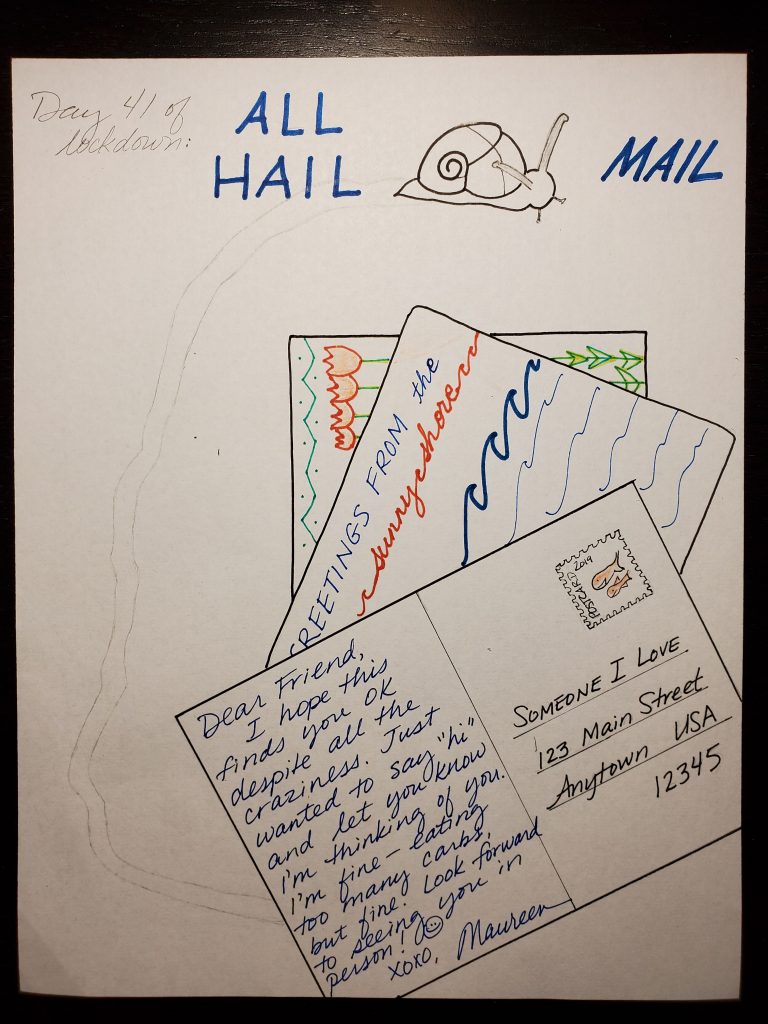 Day 41 of
lockdown:
ALL
HAIL
MAIL
GREETINGS FROM the
sunny shore
POSTCARD
2019
Dear Friend,
I hope this
finds you OK
despite all the
craziness. Just
wanted to say "hi"
and let you know
I'm thinking of you.
I'm fine - eating
too many carbs,
but fine. Look forward
to seeing you in
person! ☺
xoxo, Maureen
SOMEONE I LOVE
123 Main Street
Anytown USA
12345